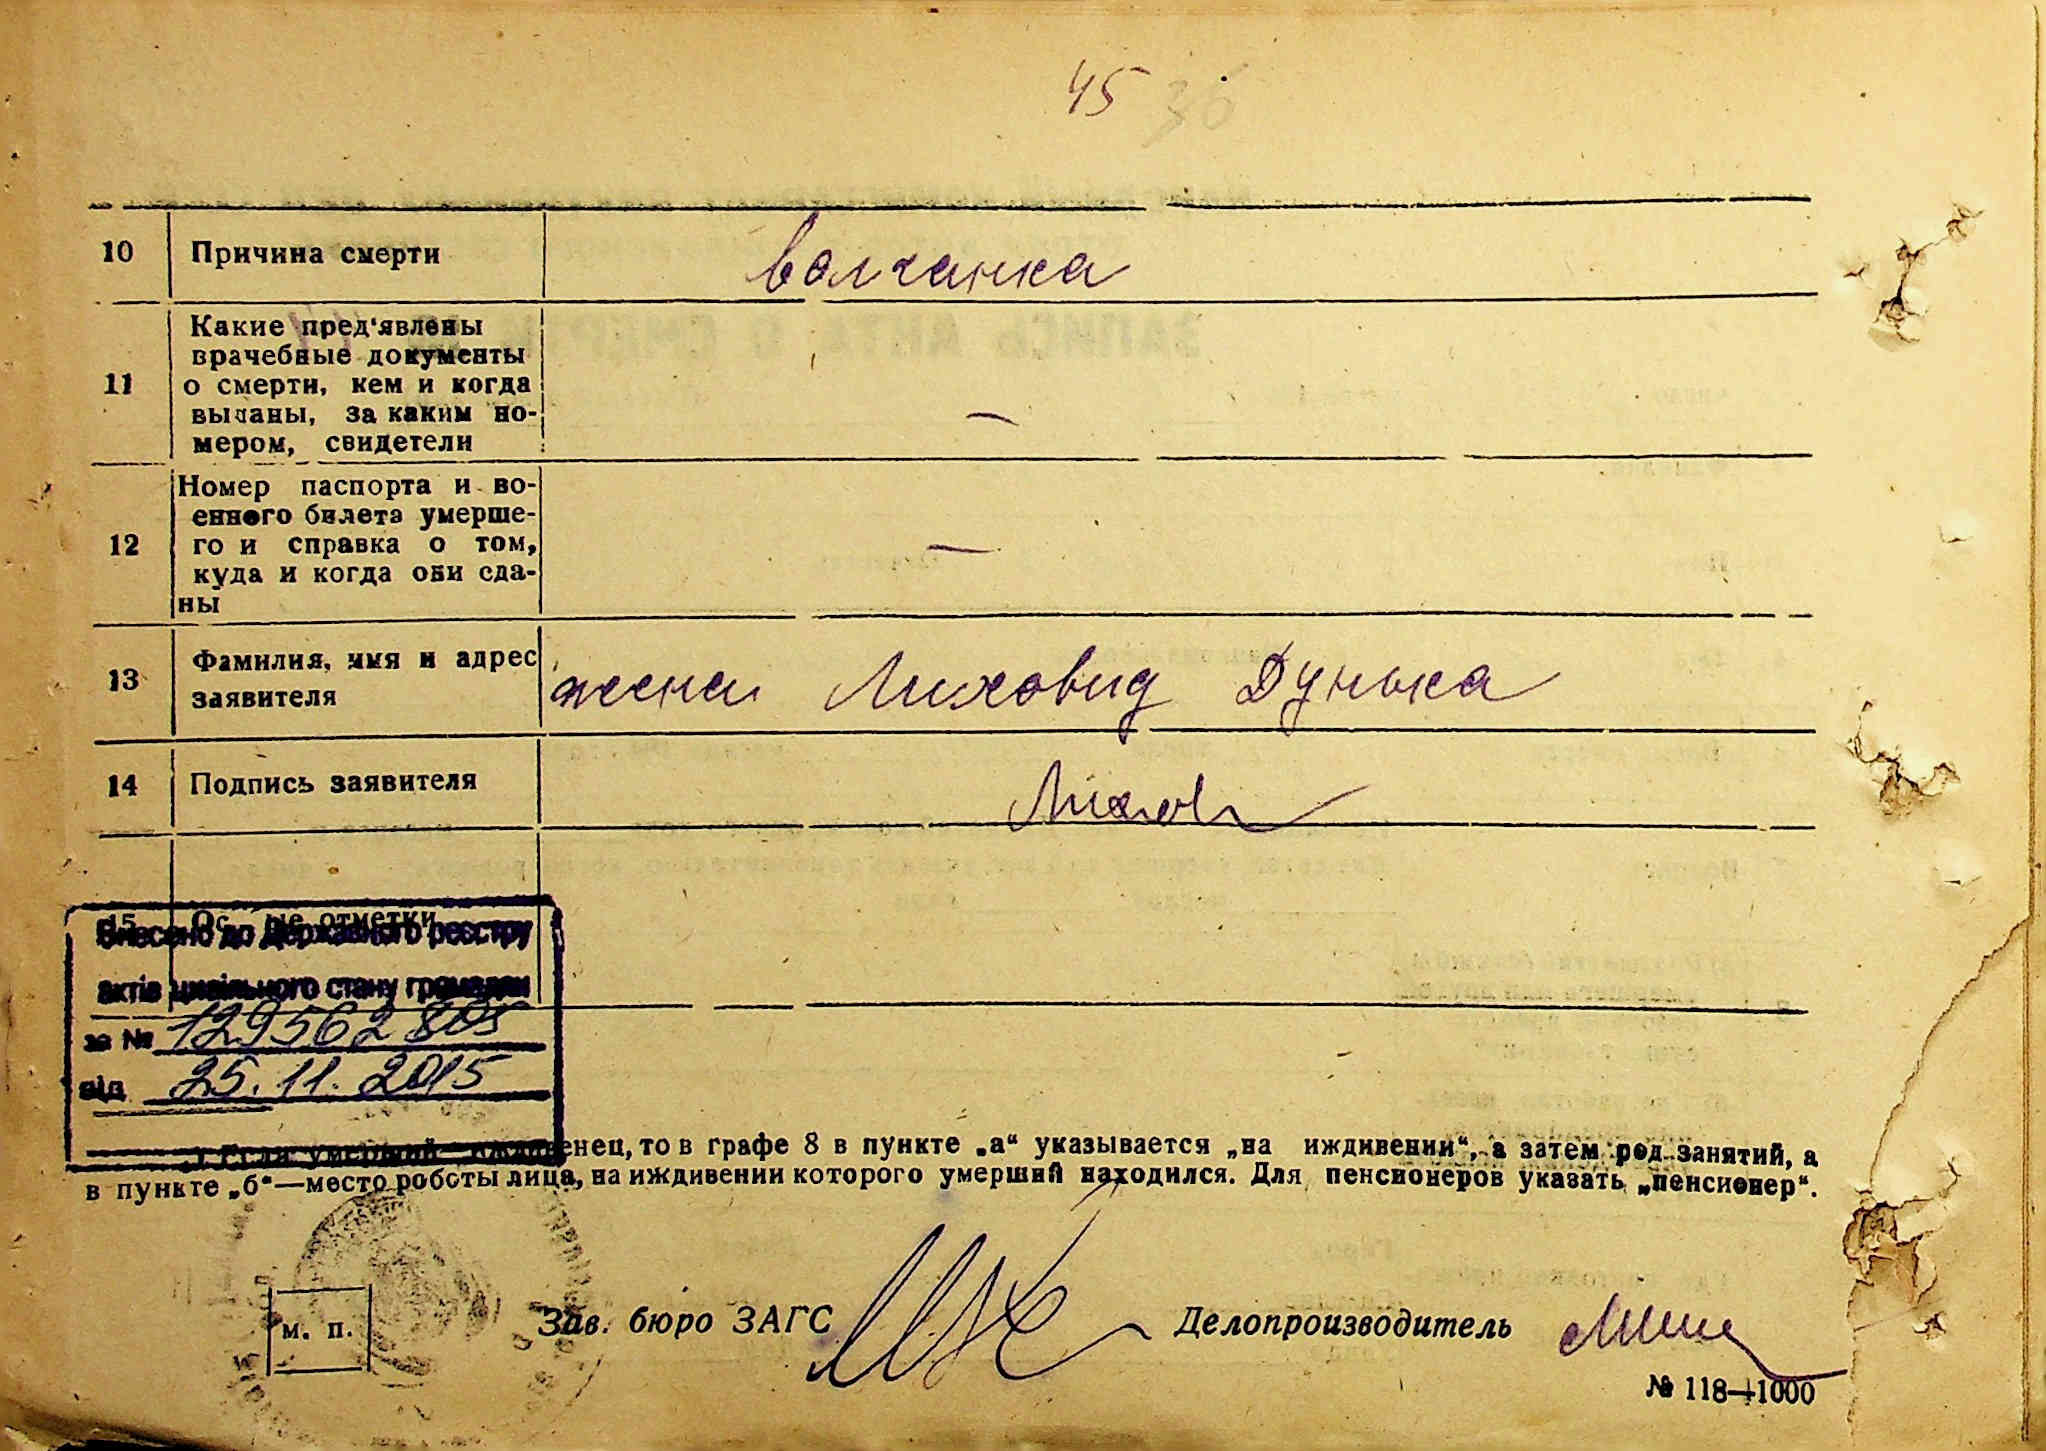 45 36
10 Причина смерти волчанка
Какие пред'явлены
врачебные документы
11 о смерти, кем и когда
выданы, за каким но-
мером, свидетели –
Номер паспорта и во-
енного билета умерше-
12 го и справка о том, –
куда и когда они сда-
ны
13 Фамилия, имя и адрес жена Лиховид Дунька
заявителя
14 Подпись заявителя Лихов
15 отметки
Внесено до Державного реєстру
актів цивільного стану громадян
за № 129562805
від 25.11.2015
Если умерший иждивенец, то в графе 8 в пункте „а“ указывается „на иждивении“, а затем род занятий, а
в пункте „б“—место роботы лица, на иждивении которого умерший находился. Для пенсионеров указать „пенсионер“.
м. п. Зав. бюро ЗАГС Делопроизводитель
№ 118—1000